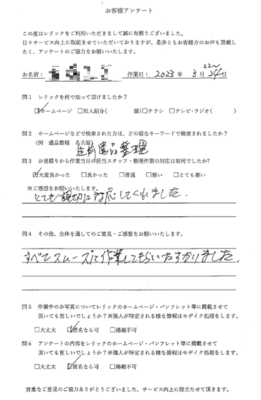 お客様アンケート
この度はレリックをご利用いただきまして誠に有難うございました。
日々サービス向上に取組をさせていただいておりますが、是非ともお客様方のお声を頂戴したく、アンケートのご協力をお願いいたします。
お名前: 作業日: 2023年 3月 24日
問1 レリックを何で知って頂けましたか?
ホームページ □知人紹介( 様) □チラシ □テレビ・ラジオ( )
問2 ホームページなどで検索された方は、どの様なキーワードで検索されましたか?
(例 遺品整理 名古屋) 生前遺品整理
問3 お見積りから作業当日の担当スタッフ・整理作業の対応は如何でしたか?
大変良かった □良かった □普通 □悪い □とても悪い
※ご感想をお願いいたします。
とても親切に対応してくれました。
問4 その他、全体を通してのご意見・ご感想をお願いいたします。
すべてスムーズに作業してもらいたすかりました。
問5 作業中のお写真についてレリックのホームページ・パンフレット等に掲載させて
頂いても宜しいでしょうか?※個人が特定される様な情報はモザイク処理をします。
□大丈夫 匿名なら可 □掲載不可
問6 アンケートの内容をレリックのホームページ・パンフレット等に掲載させて
頂いても宜しいでしょうか?※個人が特定される様な情報はモザイク処理をします。
□大丈夫 匿名なら可 □掲載不可
貴重なご意見のご協力ありがとうございました。サービス向上に役立たせて頂きます。